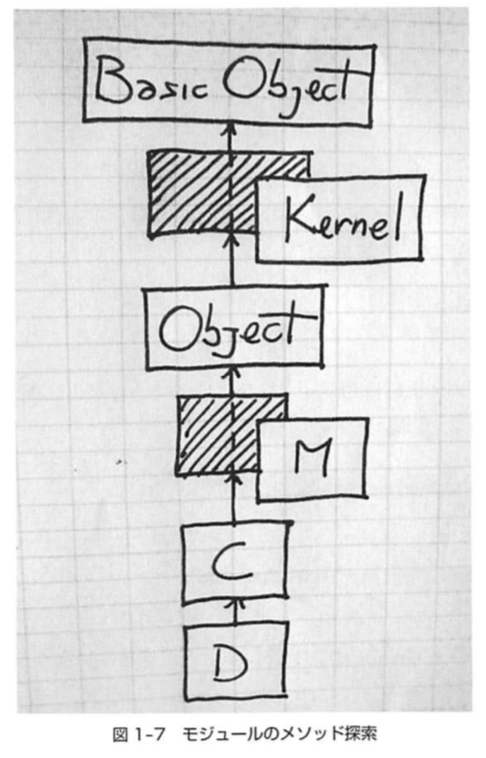 Basic Object
Kernel
Object
M
C
D
図1-7 モジュールのメソッド探索